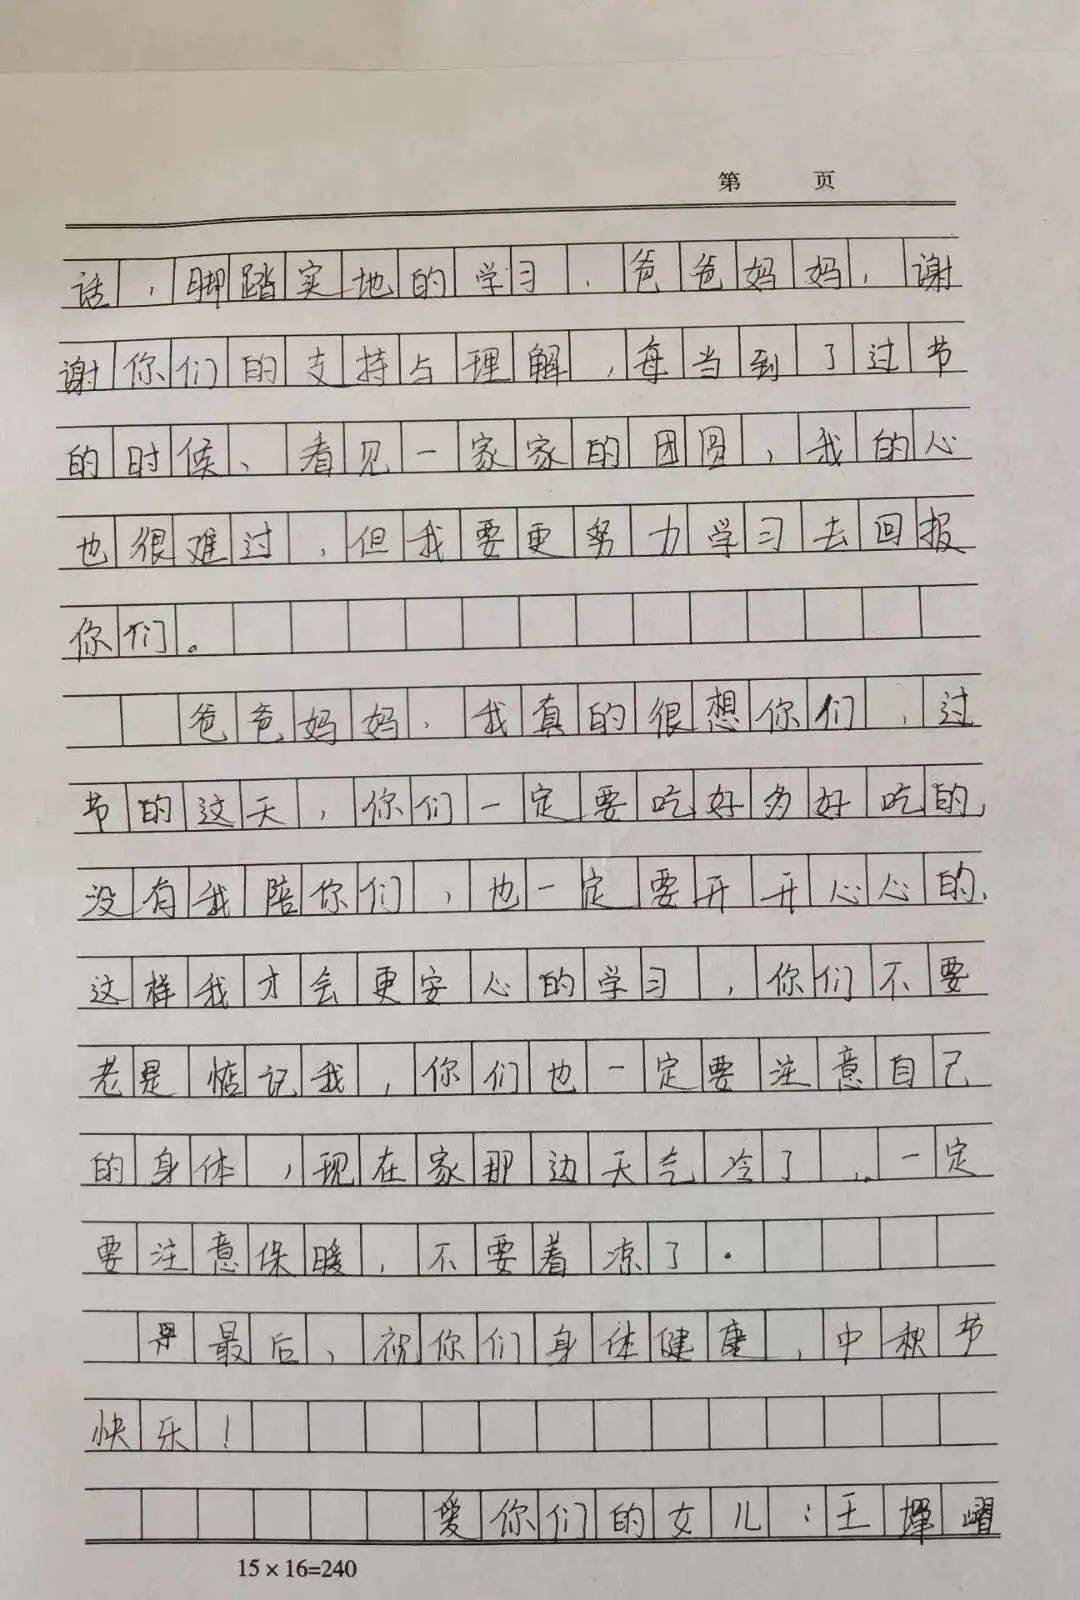 第 页
话，脚踏实地的学习，爸爸妈妈，谢
谢你们的支持与理解，每当到了过节
的时候、看见一家家的团圆，我的心
也很难过，但我要更努力学习去回报
你们。
爸爸妈妈，我真的很想你们，过
节的这天，你们一定要吃好多好吃的，
没有我陪你们，也一定要开开心心的、
这样我才会更安心的学习，你们不要
老是惦记我，你们也一定要注意自己
的身体，现在家那边天气冷了，一定
要注意保暖，不要着凉了.
最后，祝你们身体健康，中秋节
快乐！
爱你们的女儿：王
15×16=240